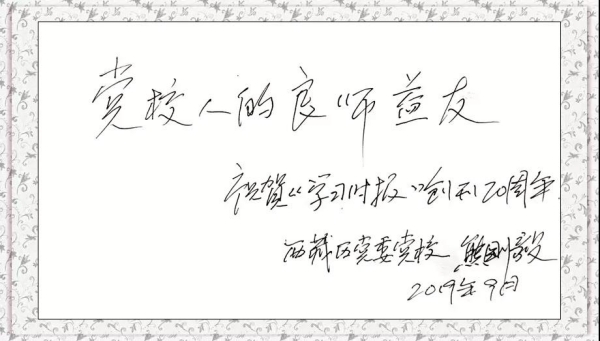 党校人的良师益友
祝贺《学习时报》创刊20周年
西藏区党委党校 熊刚毅
2019年9月